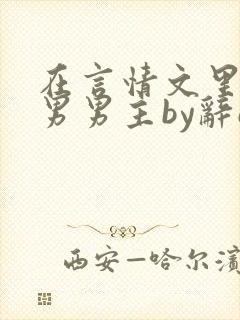 在言情文里
男男主by辭
西安—哈尔滨